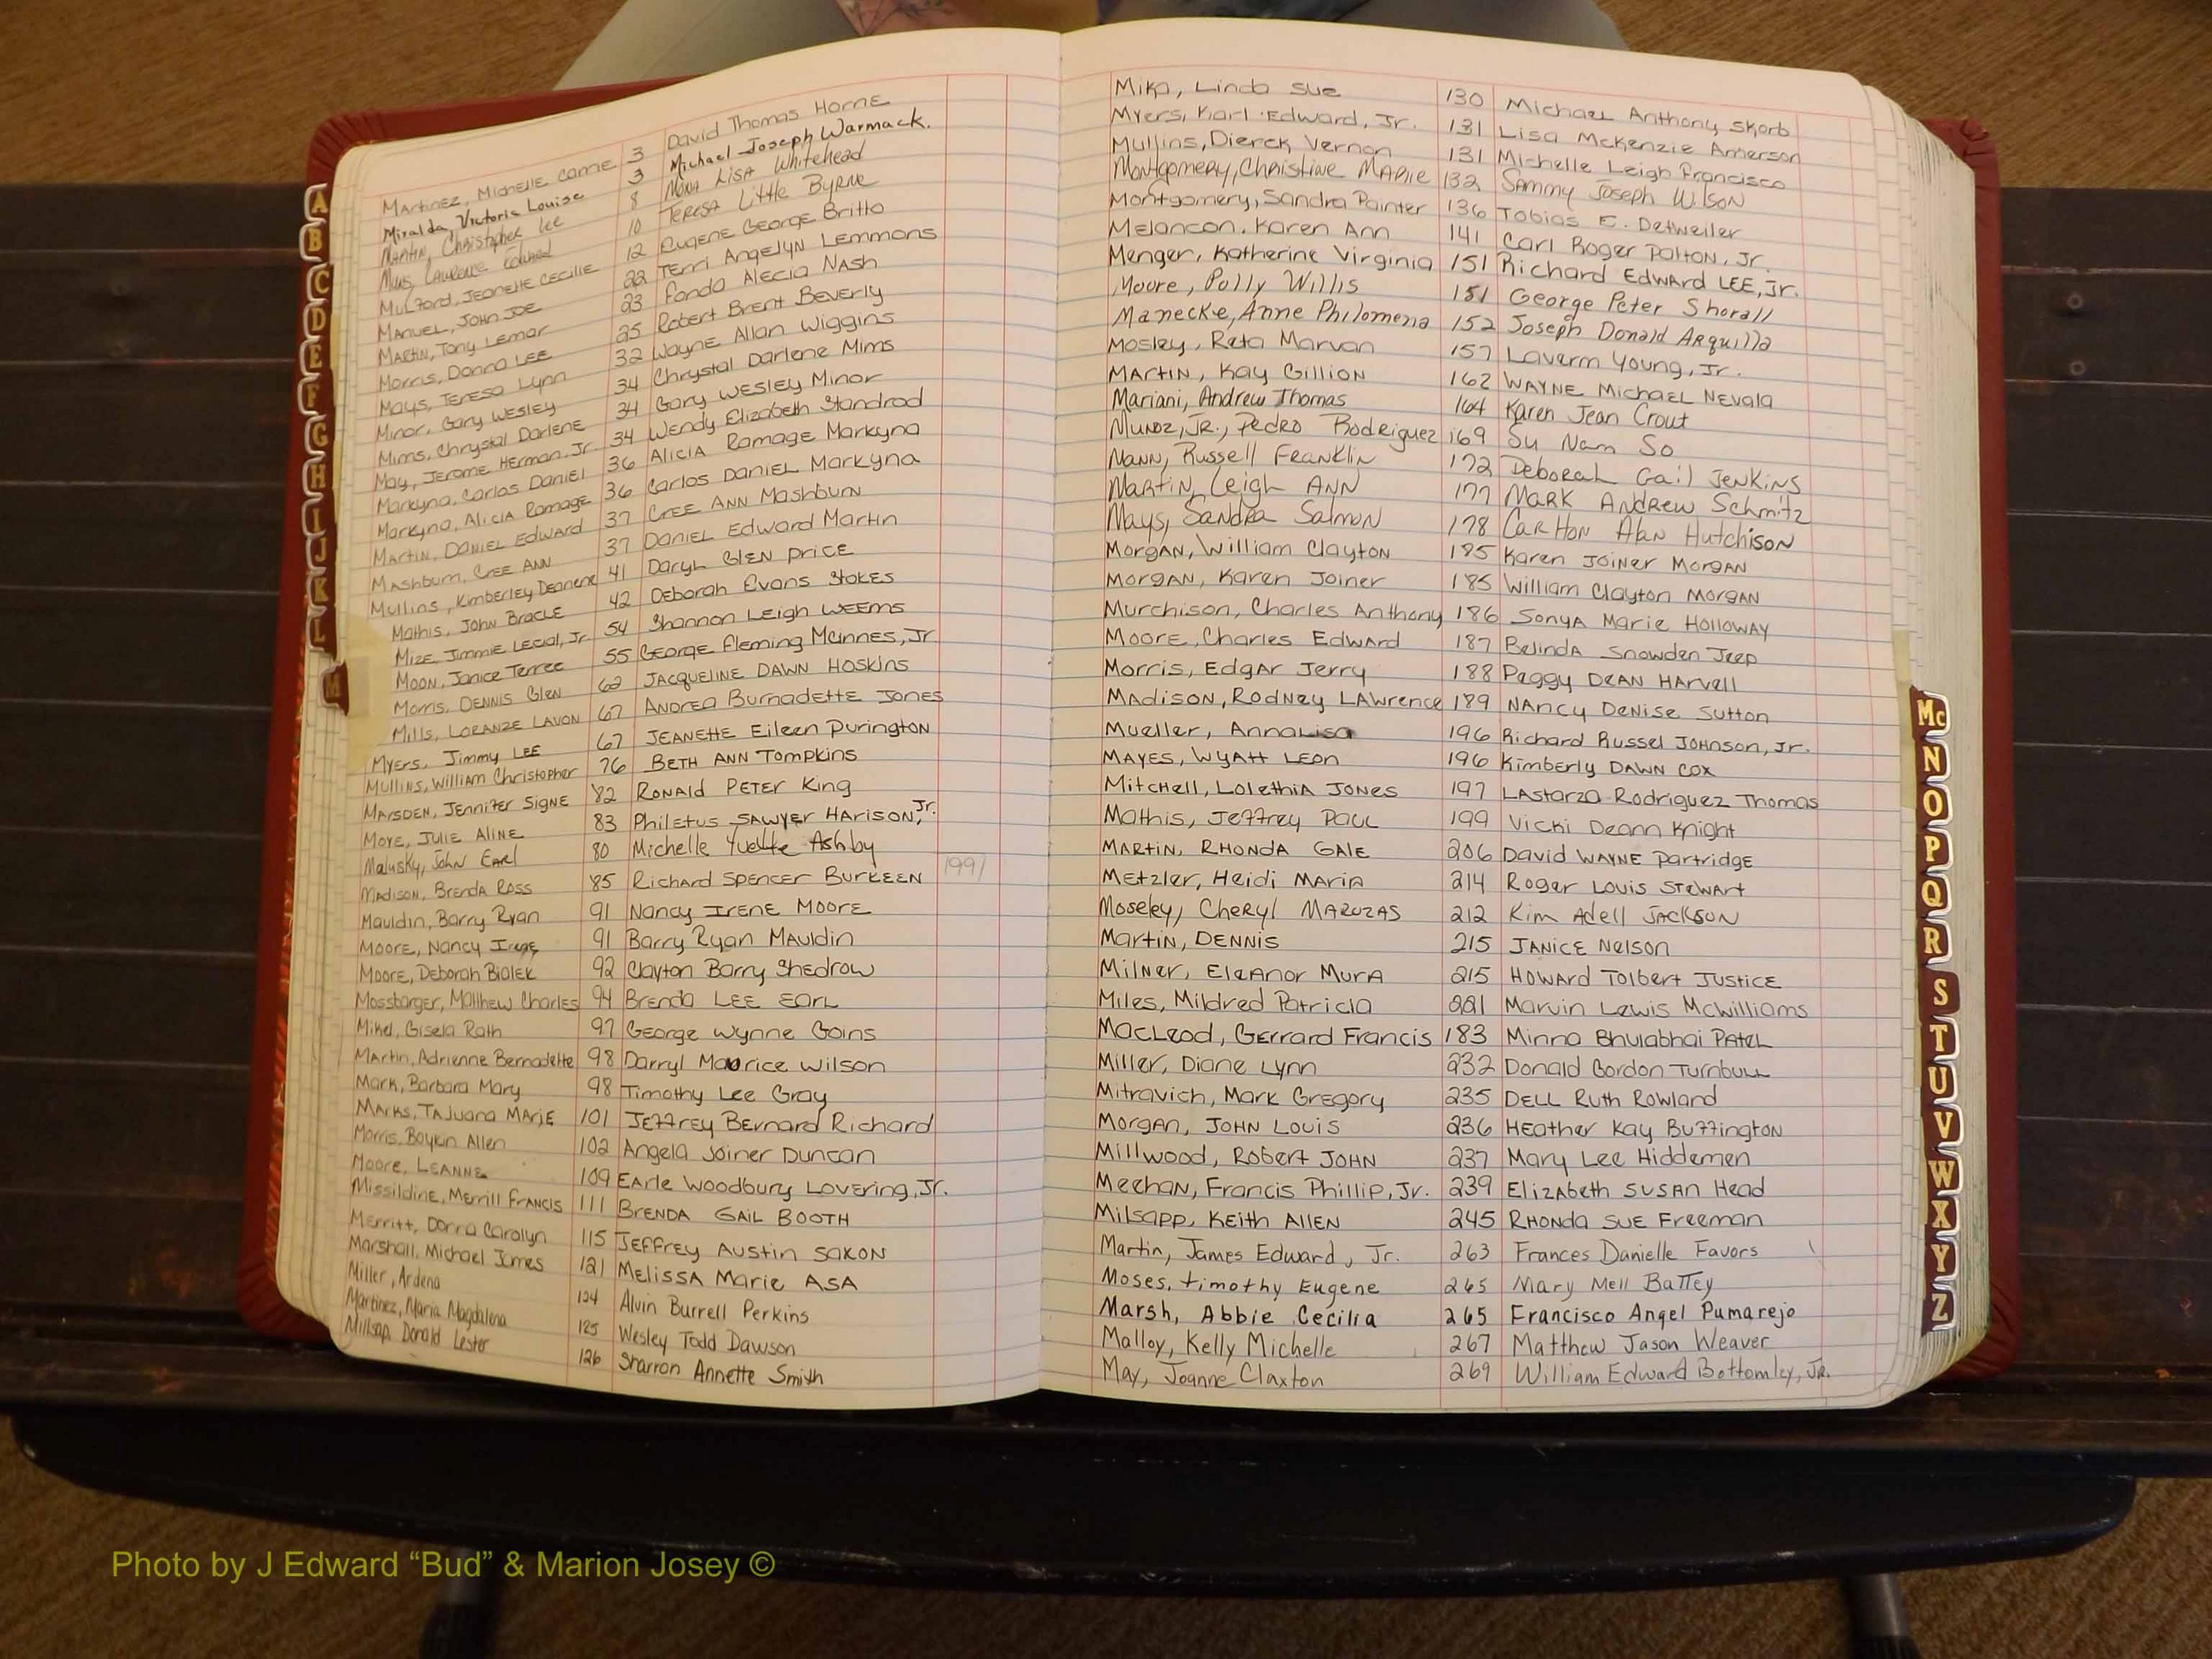 A
B
C
D
E
F
G
H
I
J
K
L
M
Martinez, Michelle Carrie 3 David Thomas Horne
Miralda, Victoria Louise 3 Michael Joseph Warmack.
Martin, Christopher Lee 8 Mona Lisa Whitehead
Mims, Laurence Edward 10 Teresa Little Byrne
Mulford, Jeanette Cecille 12 Eugene George Britto
Manuel, John Joe 22 Terri Angelyn Lemmons
Martin, Tony Lemar 23 Fonda Alecia Nash
Morris, Donna Lee 25 Robert Brent Beverly
Mays, Teresa Lynn 32 Wayne Allan Wiggins
Minor, Gary Wesley 34 Chrystal Darlene Mims
Mims, Chrystal Darlene 34 Gary Wesley Minor
May, Jerome Herman, Jr. 34 Wendy Elizabeth Standrod
Markyna, Carlos Daniel 36 Alicia Ramage Markyna
Markyna, Alicia Ramage 36 Carlos Daniel Markyna
Martin, Daniel Edward 37 Cree Ann Mashburn
Mashburn, Cree Ann 37 Daniel Edward Martin
Mullins, Kimberley Deanene 41 Daryl Glen Price
Mathis, John Bracle 42 Deborah Evans Stokes
Mize, Jimmie Lecial, Jr 54 Shannon Leigh Weems
Moon, Janice Terree 55 George Fleming McInnes, Jr
Morris, Dennis Glen 62 Jacqueline Dawn Hoskins
Mills, Loranze Lavon 67 Andrea Burnadette Jones
Myers, Jimmy Lee 67 Jeanette Eileen Purington
Mullins, William Christopher 76 Beth Ann Tompkins
Marsden, Jennifer Signe 82 Ronald Peter King
Moye, Julie Aline 83 Philetus Sawyer Harison, Jr.
Malusky, John Earl 80 Michelle Yvette Ashby
Madison, Brenda Ross 85 Richard Spencer Burkeen 1991
Mauldin, Barry Ryan 91 Nancy Irene Moore
Moore, Nancy Irene 91 Barry Ryan Mauldin
Moore, Deborah Bialek 92 Clayton Barry Shedrow
Mossbarger, Matthew Charles 94 Brenda Lee Earl
Mikel, Gisela Rath 97 George Wynne Goins
Martin, Adrienne Bernadette 98 Darryl Maurice Wilson
Mark, Barbara Mary 98 Timothy Lee Gray
Marks, TaJuana Marie 101 Jeffrey Bernard Richard
Morris, Boykin Allen 102 Angela Joiner Duncan
Moore, Leanne 109 Earle Woodbury Lovering, Jr.
Missildine, Merrill Francis 111 Brenda Gail Booth
Merritt, Donna Carolyn 115 Jeffrey Austin Sakon
Marshall, Michael James 121 Melissa Marie Asa
Miller, Ardena 124 Alvin Burrell Perkins
Martinez, Maria Magdalena 125 Wesley Todd Dawson
Millsap, Donald Lester 126 Sharron Annette Smith
Mika, Linda Sue 130 Michael Anthony Skorb
Myers, Karl Edward, Jr. 131 Lisa McKenzie Amerson
Mullins, Dierck Vernon 131 Michelle Leigh Francisco
Montgomery, Christine Marie 132 Sammy Joseph Wilson
Montgomery, Sandra Painter 136 Tobias E. Detweiler
Melancon, Karen Ann 141 Carl Roger Dalton, Jr.
Menger, Katherine Virginia 151 Richard Edward Lee, Jr.
Moore, Polly Willis 151 George Peter Shorall
Manecke, Anne Philomena 152 Joseph Donald Arquilla
Mosley, Reta Marvan 157 Laverm Young, Jr.
Martin, Kay Gillion 162 Wayne Michael Nevala
Mariani, Andrew Thomas 164 Karen Jean Crout
Munoz, Jr., Pedro Rodriguez 169 Su Nam So
Mann, Russell Franklin 172 Deborah Gail Jenkins
Martin, Leigh Ann 177 Mark Andrew Schmitz
Mays, Sandra Salmon 178 Carlton Alan Hutchison
Morgan, William Clayton 185 Karen Joiner Morgan
Morgan, Karen Joiner 185 William Clayton Morgan
Murchison, Charles Anthony 186 Sonya Marie Holloway
Moore, Charles Edward 187 Belinda Snowden Jeep
Morris, Edgar Jerry 188 Peggy Dean Harvell
Madison, Rodney Lawrence 189 Nancy Denise Sutton
Mueller, Annalisa 196 Richard Russel Johnson, Jr.
Mayes, Wyatt Leon 196 Kimberly Dawn Cox
Mitchell, Lolethia Jones 197 Lastarza Rodriguez Thomas
Mathis, Jeffrey Paul 199 Vicki Deann Knight
Martin, Rhonda Gale 206 David Wayne Partridge
Metzler, Heidi Maria 214 Roger Louis Stewart
Moseley, Cheryl Maruzas 212 Kim Adell Jackson
Martin, Dennis 215 Janice Nelson
Milner, Eleanor Mura 215 Howard Tolbert Justice
Miles, Mildred Patricia 221 Marvin Lewis McWilliams
MacLeod, Gerrard Francis 183 Minna Bhulabhai Patel
Miller, Diane Lynn 232 Donald Gordon Turnbull
Mitravich, Mark Gregory 235 Dell Ruth Rowland
Morgan, John Louis 236 Heather Kay Buffington
Millwood, Robert John 237 Mary Lee Hiddemen
Meehan, Francis Phillip, Jr. 239 Elizabeth Susan Head
Milsapp, Keith Allen 245 Rhonda Sue Freeman
Martin, James Edward, Jr. 263 Frances Danielle Favors
Moses, Timothy Eugene 265 Mary Mell Battey
Marsh, Abbie Cecilia 265 Francisco Angel Pumarejo
Malloy, Kelly Michelle 267 Matthew Jason Weaver
May, Joanne Claxton 269 William Edward Bottomley, Jr.
Mc
N
O
P
Q
R
S
T
U
V
W
X
Y
Z
Photo by J Edward “Bud” & Marion Josey ©